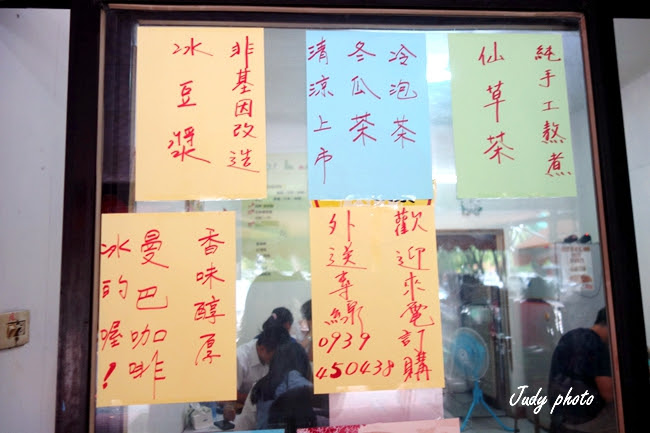 非基因改造
冰豆漿
冷泡茶
冬瓜茶
清涼上市
純手工熬煮
仙草茶
香味醇厚
曼巴咖啡
冰的喔！
歡迎來電訂購
外送專線
0939
450438
Judy photo